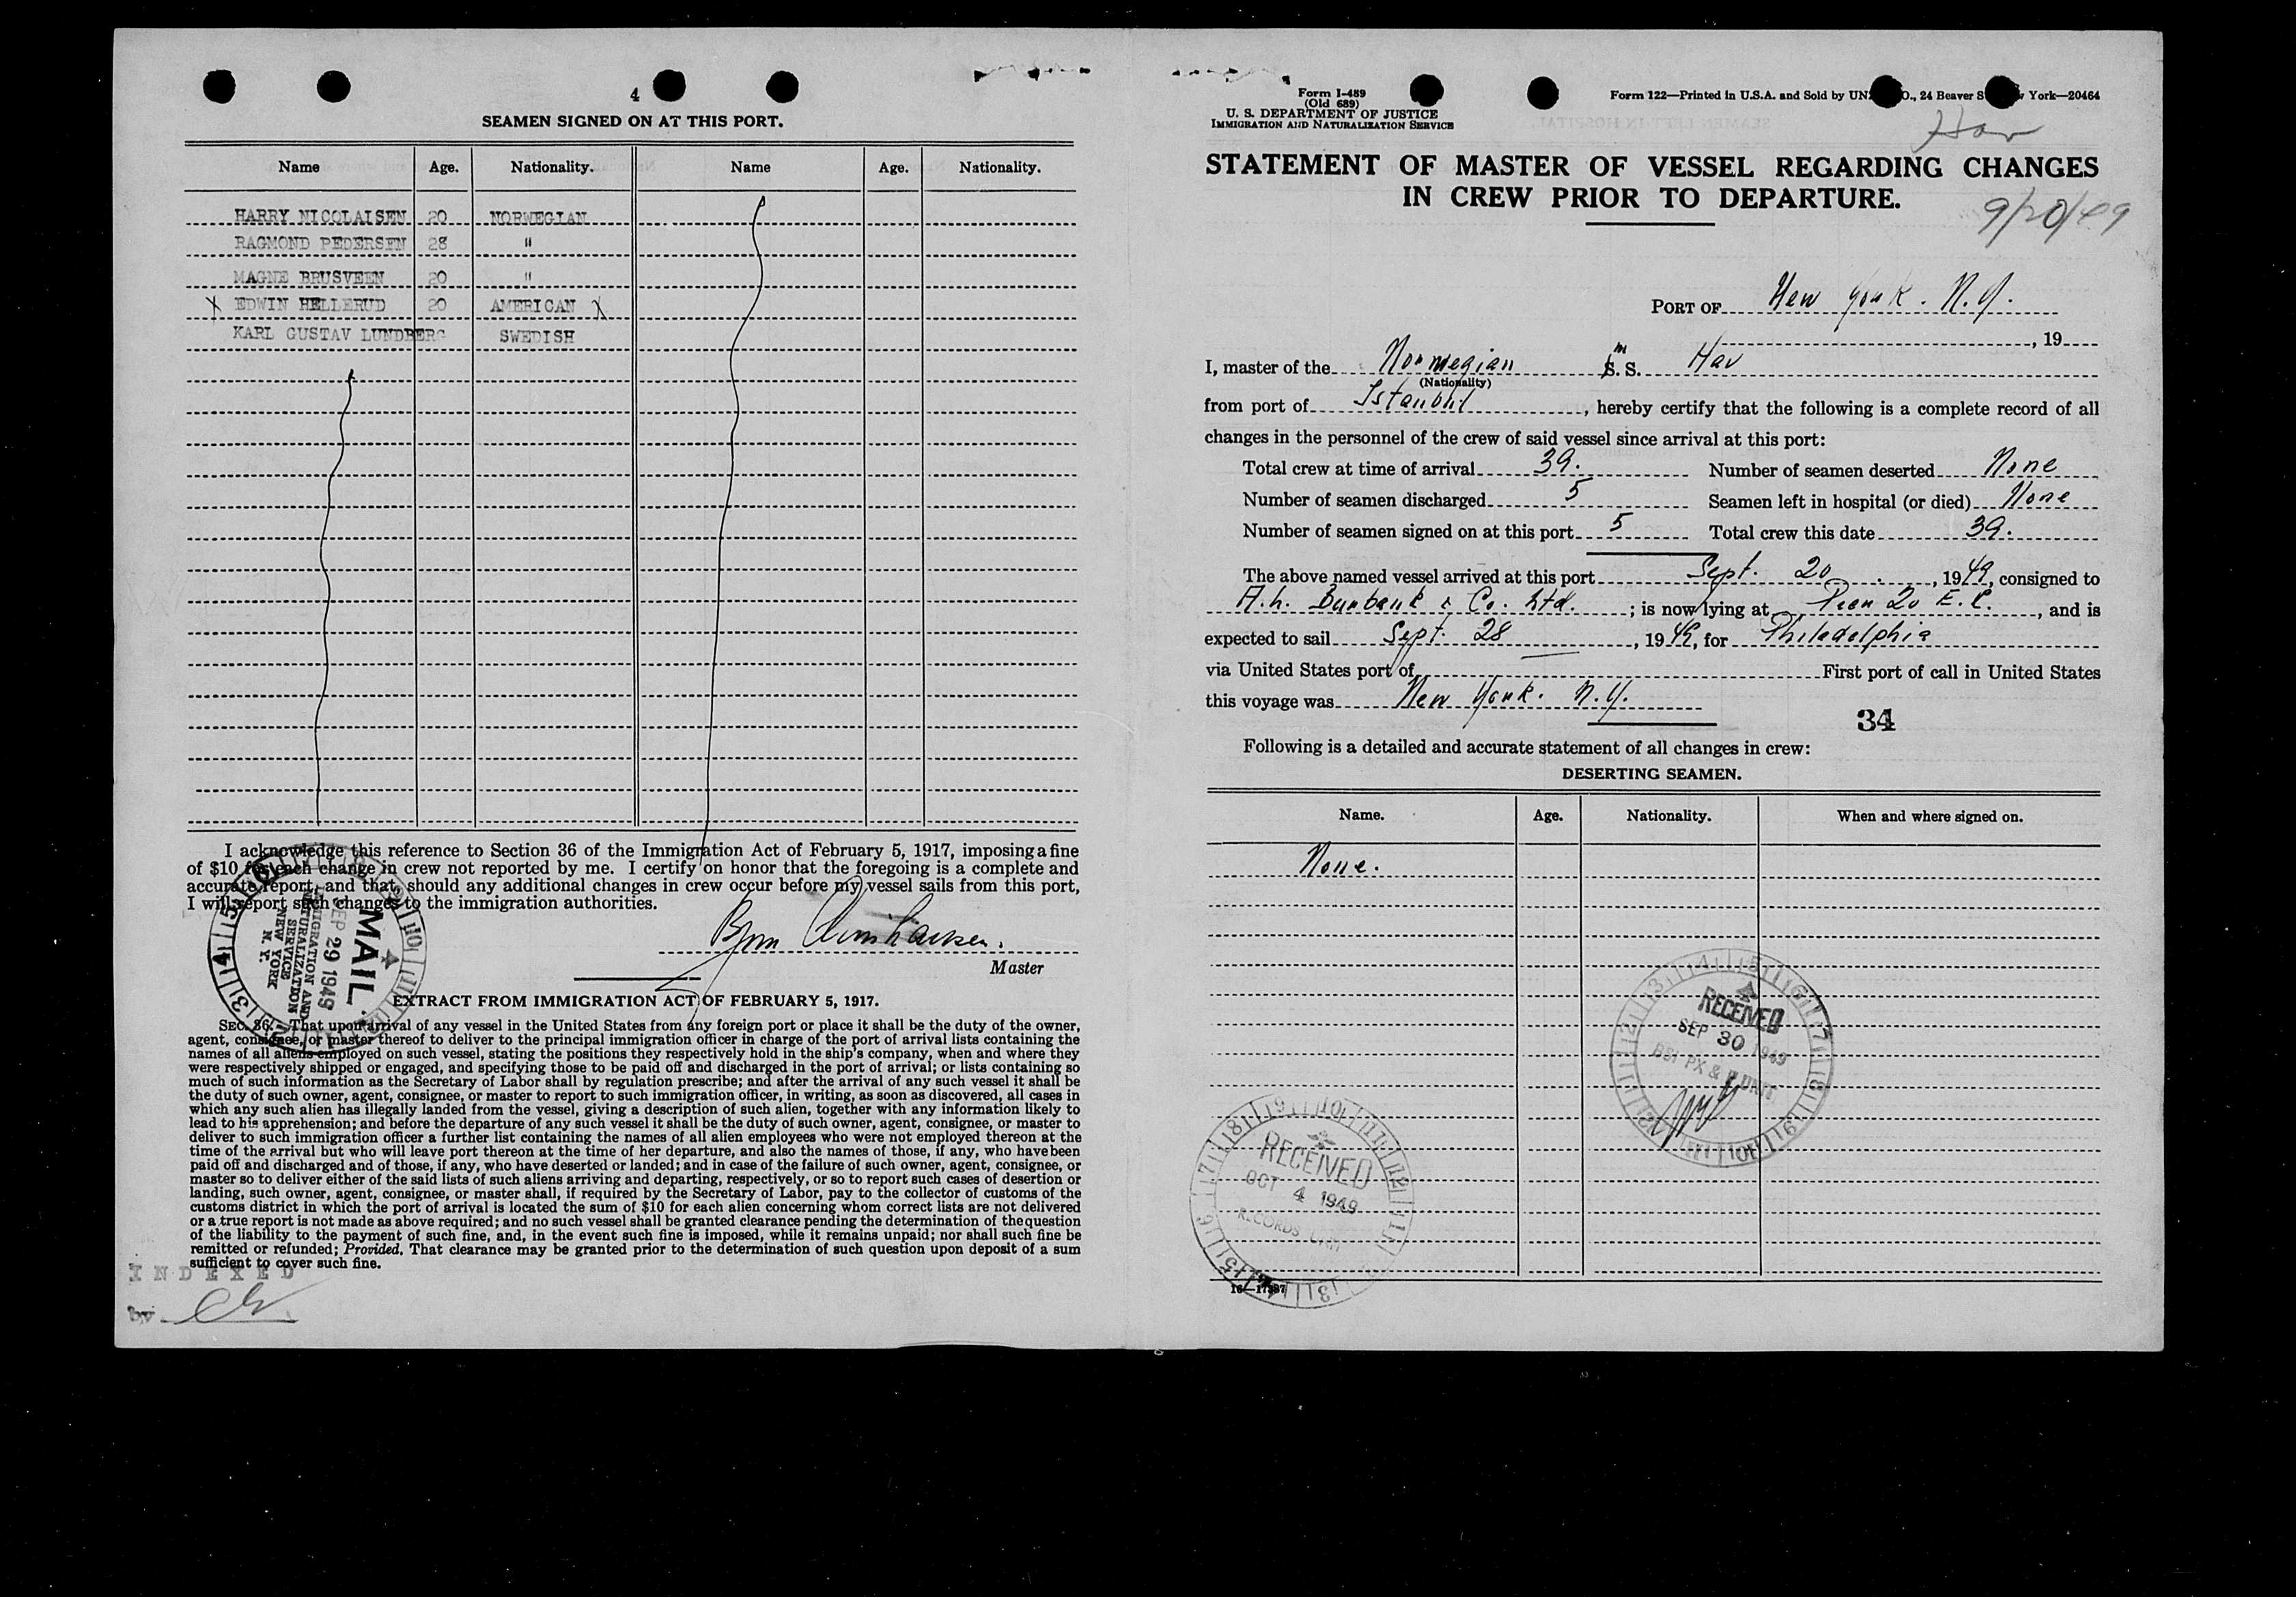 4
SEAMEN SIGNED ON AT THIS PORT.
Name Age. Nationality. Name Age. Nationality.
HARRY NICOLAISEN 20 NORWEGIAN
RAGMOND PEDERSEN 28 "
MAGNE BRUSVEEN 20 "
X EDWIN HELLERUD 20 AMERICAN X
KARL GUSTAV LUNDBERG SWEDISH
I acknowledge this reference to Section 36 of the Immigration Act of February 5, 1917, imposing a fine
of $10 for each change in crew not reported by me. I certify on honor that the foregoing is a complete and
accurate report, and that, should any additional changes in crew occur before my vessel sails from this port,
I will report such changes to the immigration authorities.
Master
MAIL
SEP 29 1949
IMMIGRATION AND
NATURALIZATION
SERVICE
NEW YORK
N. Y.
EXTRACT FROM IMMIGRATION ACT OF FEBRUARY 5, 1917.
SEC. 36. That upon arrival of any vessel in the United States from any foreign port or place it shall be the duty of the owner,
agent, consignee, or master thereof to deliver to the principal immigration officer in charge of the port of arrival lists containing the
names of all aliens employed on such vessel, stating the positions they respectively hold in the ship's company, when and where they
were respectively shipped or engaged, and specifying those to be paid off and discharged in the port of arrival; or lists containing so
much of such information as the Secretary of Labor shall by regulation prescribe; and after the arrival of any such vessel it shall be
the duty of such owner, agent, consignee, or master to report to such immigration officer, in writing, as soon as discovered, all cases in
which any such alien has illegally landed from the vessel, giving a description of such alien, together with any information likely to
lead to his apprehension; and before the departure of any such vessel it shall be the duty of such owner, agent, consignee, or master to
deliver to such immigration officer a further list containing the names of all alien employees who were not employed thereon at the
time of the arrival but who will leave port thereon at the time of her departure, and also the names of those, if any, who have been
paid off and discharged and of those, if any, who have deserted or landed; and in case of the failure of such owner, agent, consignee, or
master so to deliver either of the said lists of such aliens arriving and departing, respectively, or so to report such cases of desertion or
landing, such owner, agent, consignee, or master shall, if required by the Secretary of Labor, pay to the collector of customs of the
customs district in which the port of arrival is located the sum of $10 for each alien concerning whom correct lists are not delivered
or a true report is not made as above required; and no such vessel shall be granted clearance pending the determination of the question
of the liability to the payment of such fine, and, in the event such fine is imposed, while it remains unpaid; nor shall such fine be
remitted or refunded; Provided, That clearance may be granted prior to the determination of such question upon deposit of a sum
sufficient to cover such fine.
INDEXED
by
Form I-489
(Old 689)
U. S. DEPARTMENT OF JUSTICE
IMMIGRATION AND NATURALIZATION SERVICE
Form 122—Printed in U.S.A. and Sold by 24 Beaver York—20464
Hav
STATEMENT OF MASTER OF VESSEL REGARDING CHANGES
IN CREW PRIOR TO DEPARTURE.
9/20/49
PORT OF New York. N.Y.
, 19
I, master of the Norwegian m S. S. Hav
(Nationality)
from port of Istanbul, hereby certify that the following is a complete record of all
changes in the personnel of the crew of said vessel since arrival at this port:
Total crew at time of arrival 39. Number of seamen deserted None
Number of seamen discharged 5 Seamen left in hospital (or died) None
Number of seamen signed on at this port 5 Total crew this date 39.
The above named vessel arrived at this port Sept. 20, 1949, consigned to
A.h. Burbank & Co. Ltd.; is now lying at Pier 20 E.R., and is
expected to sail Sept. 28, 1949, for Philadelphia
via United States port of First port of call in United States
this voyage was New York. N.Y.
34
Following is a detailed and accurate statement of all changes in crew:
DESERTING SEAMEN.
Name. Age. Nationality. When and where signed on.
None.
RECEIVED
SEP 30 1949
RECEIVED
OCT 4 1949
RECORDS UNIT